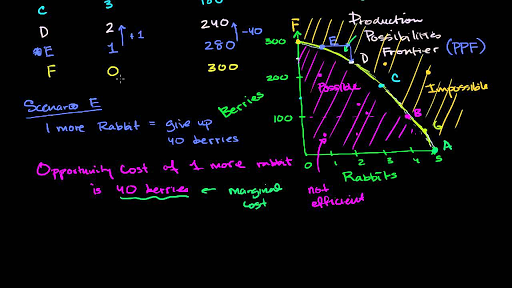 C 3 180
D 2 240
+1 -40
*E 1 280
F 0 300
Scenario E
1 more Rabbit = give up
40 berries
Opportunity Cost of 1 more rabbit
is 40 berries ← marginal
cost
not
efficient
Production
Possibilities
Frontier (PPF)
Berries
300
200
100
0 1 2 3 4 5
Rabbits
F
E
D
C
B
G
A
Possible
Impossible